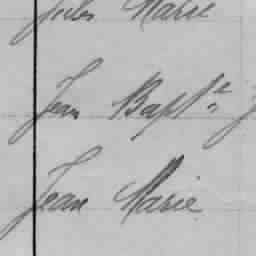 Jules Marie
Jean Bapt.e
Jean Marie